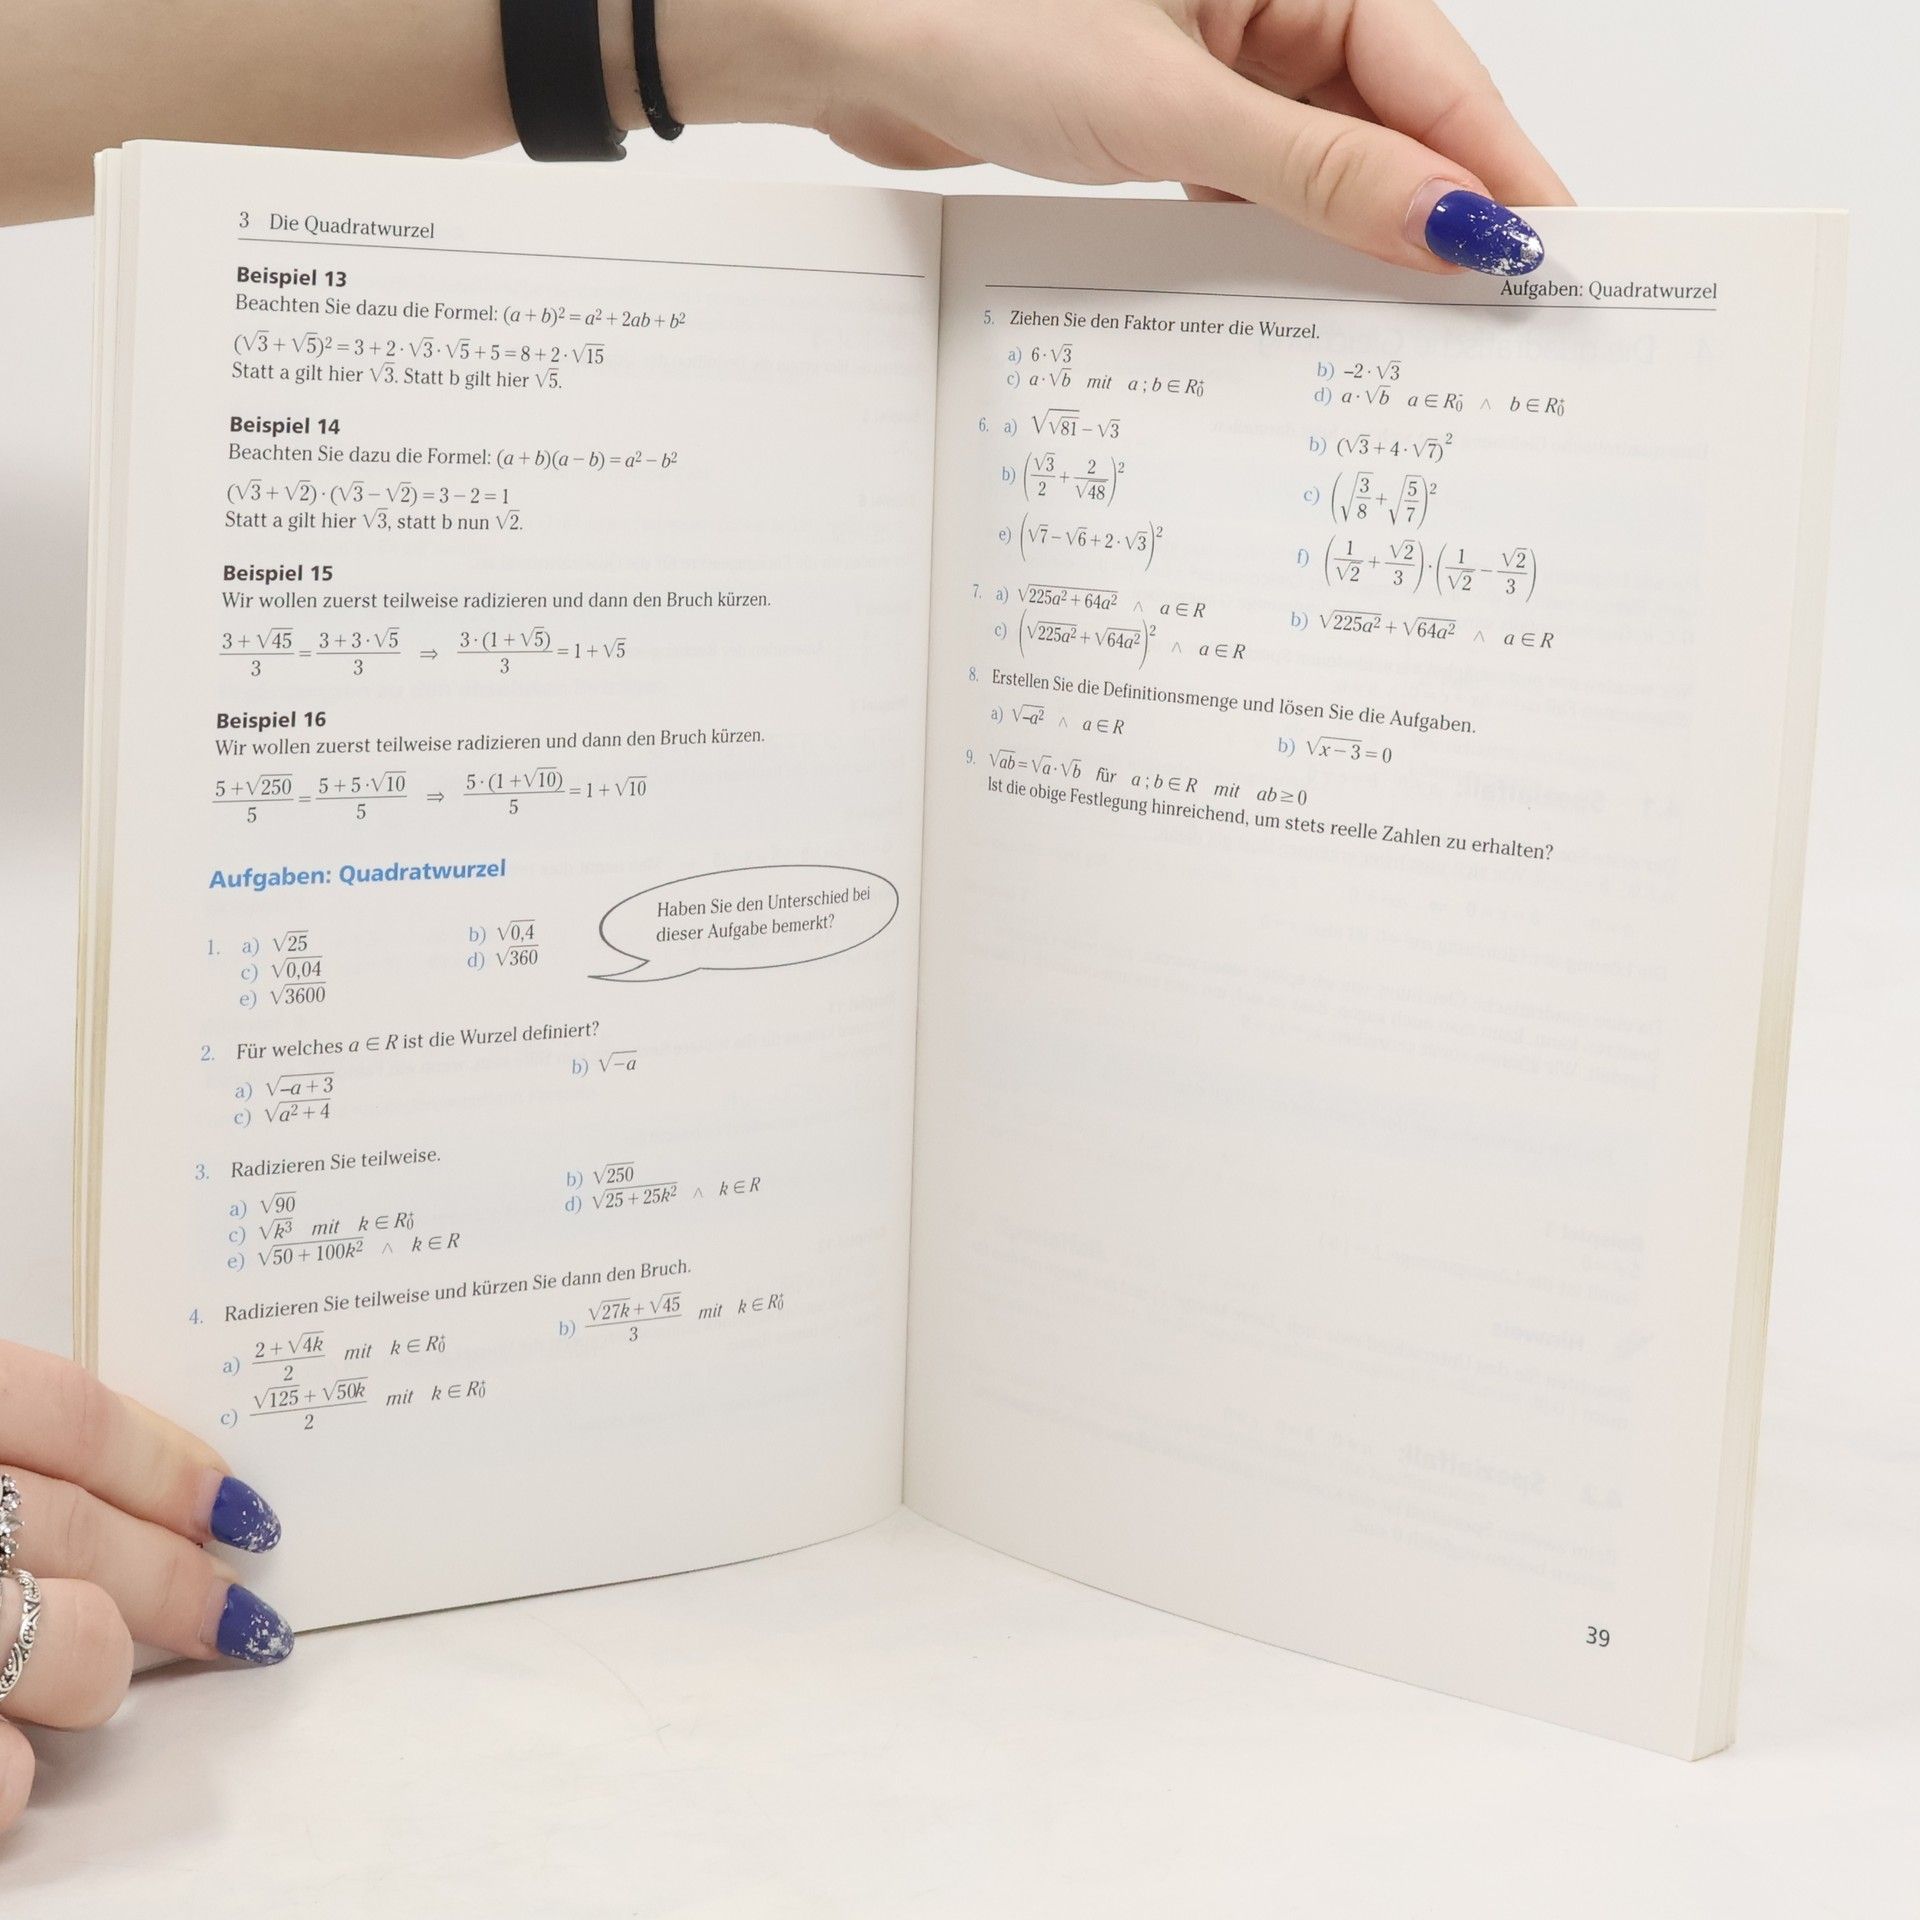 3 Die Quadratwurzel
Beispiel 13
Beachten Sie dazu die Formel: (a + b)² = a² + 2ab + b²
(√3 + √5)² = 3 + 2 · √3 · √5 + 5 = 8 + 2 · √15
Statt a gilt hier √3. Statt b gilt hier √5.
Beispiel 14
Beachten Sie dazu die Formel: (a + b)(a − b) = a² − b²
(√3 + √2) · (√3 − √2) = 3 − 2 = 1
Statt a gilt hier √3, statt b nun √2.
Beispiel 15
Wir wollen zuerst teilweise radizieren und dann den Bruch kürzen.
(3 + √45)/3 = (3 + 3 · √5)/3 ⇒ (3 · (1 + √5))/3 = 1 + √5
Beispiel 16
Wir wollen zuerst teilweise radizieren und dann den Bruch kürzen.
(5 + √250)/5 = (5 + 5 · √10)/5 ⇒ (5 · (1 + √10))/5 = 1 + √10
Aufgaben: Quadratwurzel
Haben Sie den Unterschied bei
dieser Aufgabe bemerkt?
1. a) √25 b) √0,4
c) √0,04 d) √360
e) √3600
2. Für welches a ∈ R ist die Wurzel definiert?
a) √(−a + 3) b) √(−a)
c) √(a² + 4)
3. Radizieren Sie teilweise.
a) √90 b) √250
c) √(k³) mit k ∈ R₀⁺ d) √(25 + 25k²) ∧ k ∈ R
e) √(50 + 100k²) ∧ k ∈ R
4. Radizieren Sie teilweise und kürzen Sie dann den Bruch.
a) (2 + √(4k))/2 mit k ∈ R₀⁺ b) (√(27k) + √45)/3 mit k ∈ R₀⁺
c) (√125 + √(50k))/2 mit k ∈ R₀⁺
Aufgaben: Quadratwurzel
5. Ziehen Sie den Faktor unter die Wurzel.
a) 6 · √3 b) −2 · √3
c) a · √b mit a ; b ∈ R₀⁺ d) a · √b a ∈ R₀⁻ ∧ b ∈ R₀⁺
6. a) √(√81) − √3 b) (√3 + 4 · √7)²
b) (√3/2 + 2/√48)² c) (√(3/8) + √(5/7))²
e) (√7 − √6 + 2 · √3)² f) (1/√2 + √2/3) · (1/√2 − √2/3)
7. a) √(225a² + 64a²) ∧ a ∈ R b) √(225a²) + √(64a²) ∧ a ∈ R
c) (√(225a²) + √(64a²))² ∧ a ∈ R
8. Erstellen Sie die Definitionsmenge und lösen Sie die Aufgaben.
a) √(−a²) ∧ a ∈ R b) √(x − 3) = 0
9. √(ab) = √a · √b für a ; b ∈ R mit ab ≥ 0
Ist die obige Festlegung hinreichend, um stets reelle Zahlen zu erhalten?
39